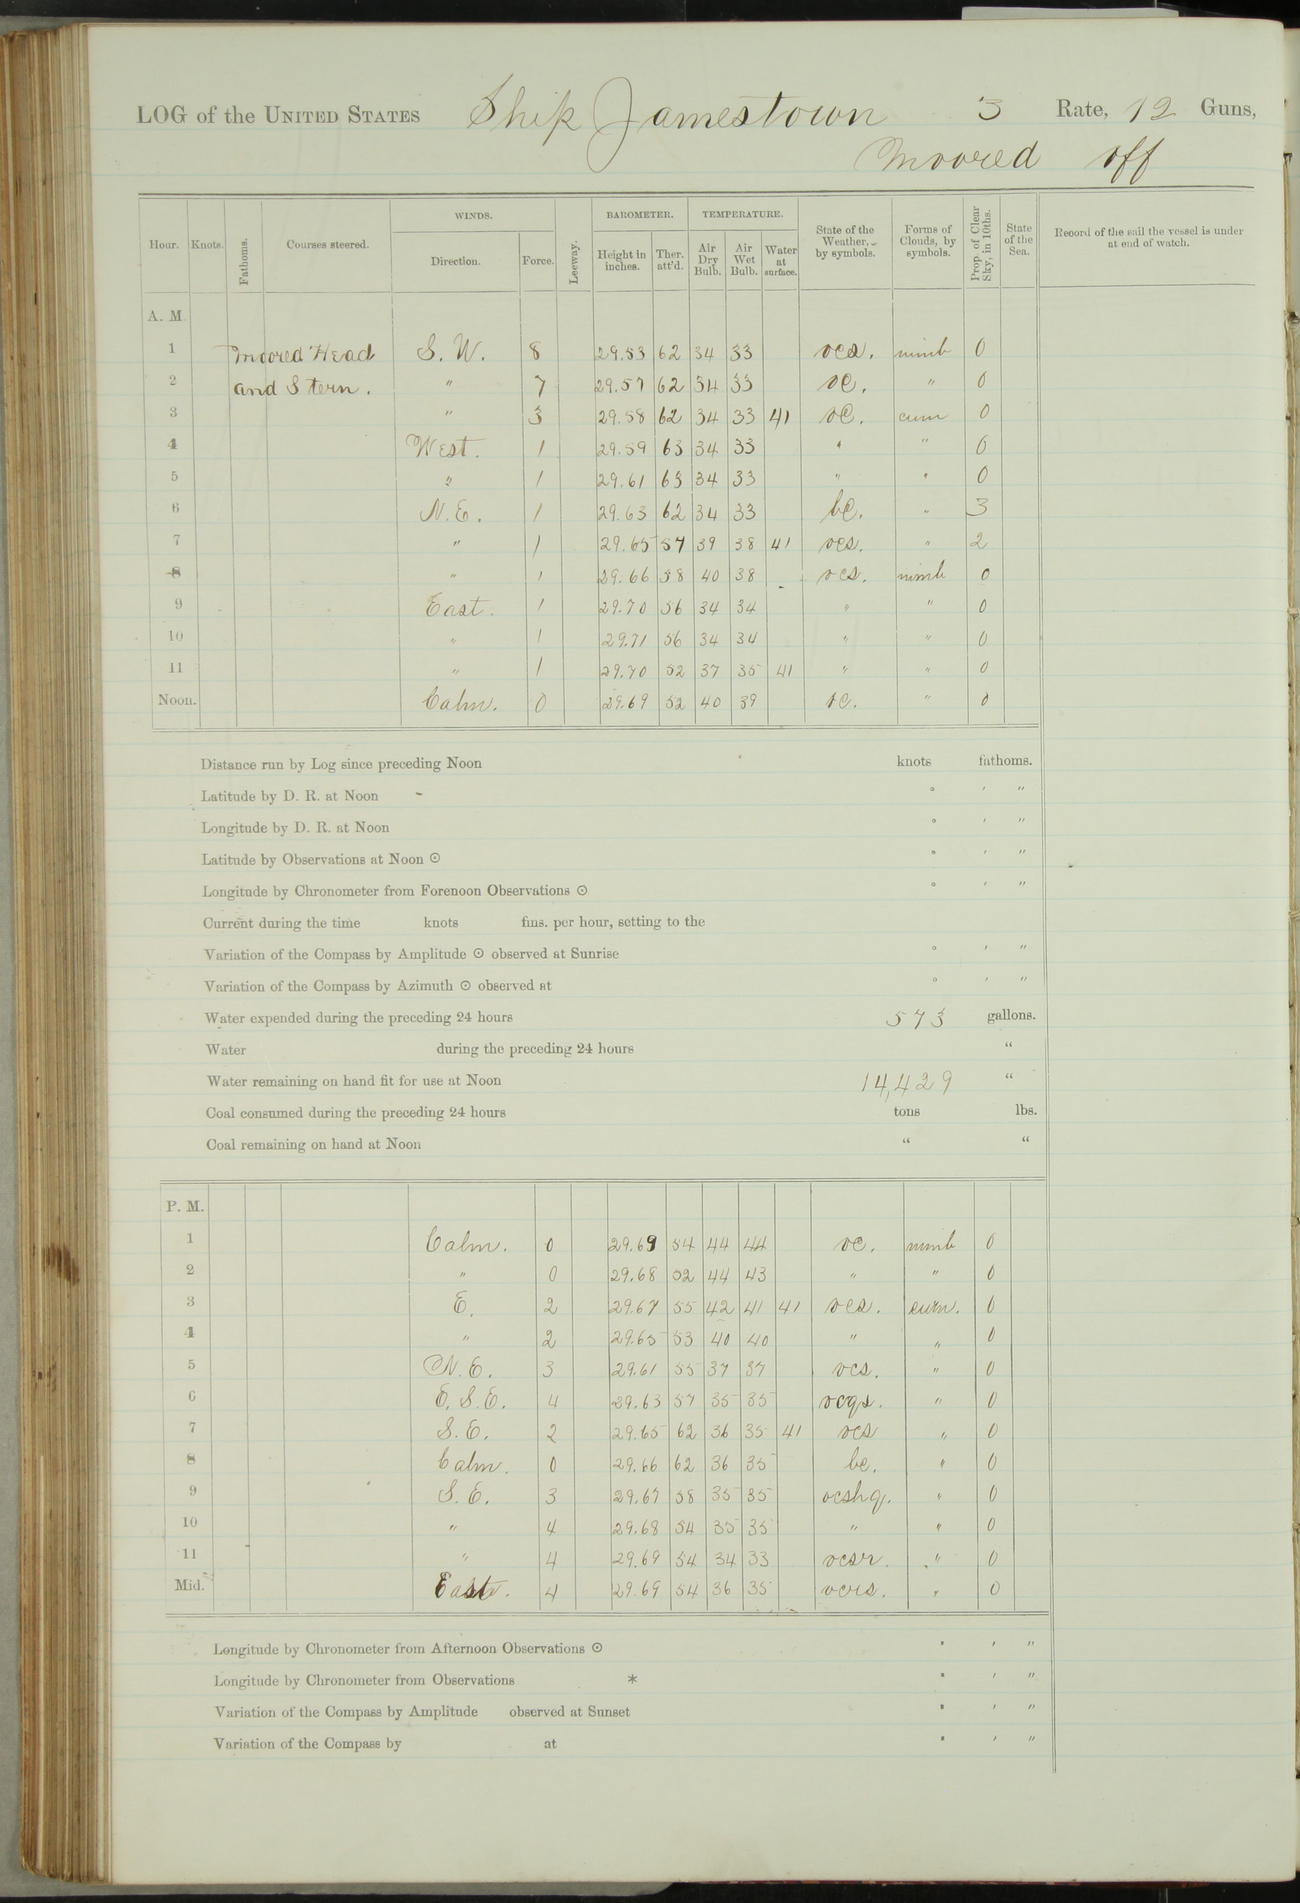 LOG of the UNITED STATES Ship Jamestown 3 Rate, 12 Guns,
Moored off
Hour. Knots. Fathoms. Courses steered. WINDS. Direction. Force. Leeway. BAROMETER. Height in inches. Ther. att'd. TEMPERATURE. Air Dry Bulb. Air Wet Bulb. Water at surface. State of the Weather, by symbols. Forms of Clouds, by symbols. Prop. of Clear Sky, in 10ths. State of the Sea. Record of the sail the vessel is under at end of watch.
A. M.
1 Moored Head S. W. 8 29.53 62 34 33 ocs. nimb 0
2 and Stern. " 7 29.57 62 34 33 oc. " 0
3 " 3 29.58 62 34 33 41 oc. cum 0
4 West. 1 29.59 63 34 33 " " 0
5 " 1 29.61 63 34 33 " " 0
6 N. E. 1 29.63 62 34 33 bc. " 3
7 " 1 29.65 57 39 38 41 ocs. " 2
8 " 1 29.66 58 40 38 ocs. nimb 0
9 East. 1 29.70 56 34 34 " " 0
10 " 1 29.71 56 34 34 " " 0
11 " 1 29.70 52 37 35 41 " " 0
Noon. Calm. 0 29.69 52 40 39 oc. " 0
Distance run by Log since preceding Noon knots fathoms.
Latitude by D. R. at Noon ° ' "
Longitude by D. R. at Noon ° ' "
Latitude by Observations at Noon ⊙ ° ' "
Longitude by Chronometer from Forenoon Observations ⊙ ° ' "
Current during the time knots fms. per hour, setting to the
Variation of the Compass by Amplitude ⊙ observed at Sunrise ° ' "
Variation of the Compass by Azimuth ⊙ observed at ° ' "
Water expended during the preceding 24 hours 573 gallons.
Water during the preceding 24 hours "
Water remaining on hand fit for use at Noon 14,429 "
Coal consumed during the preceding 24 hours tons lbs.
Coal remaining on hand at Noon " "
P. M.
1 Calm. 0 29.69 54 44 44 oc. nimb 0
2 " 0 29.68 52 44 43 " " 0
3 E. 2 29.67 55 42 41 41 ocs. cum. 0
4 " 2 29.65 53 40 40 " " 0
5 N. E. 3 29.61 55 37 37 ocs. " 0
6 E. S. E. 4 29.63 57 35 35 ocqs. " 0
7 S. E. 2 29.65 62 36 35 41 ocs " 0
8 Calm. 0 29.66 62 36 35 bc. " 0
9 S. E. 3 29.67 58 35 35 ocshq. " 0
10 " 4 29.68 54 35 35 " " 0
11 " 4 29.69 54 34 33 ocsr. " 0
Mid. East. 4 29.69 54 36 35 " 0
Longitude by Chronometer from Afternoon Observations ⊙ ° ' "
Longitude by Chronometer from Observations * ° ' "
Variation of the Compass by Amplitude observed at Sunset ° ' "
Variation of the Compass by at ° ' "